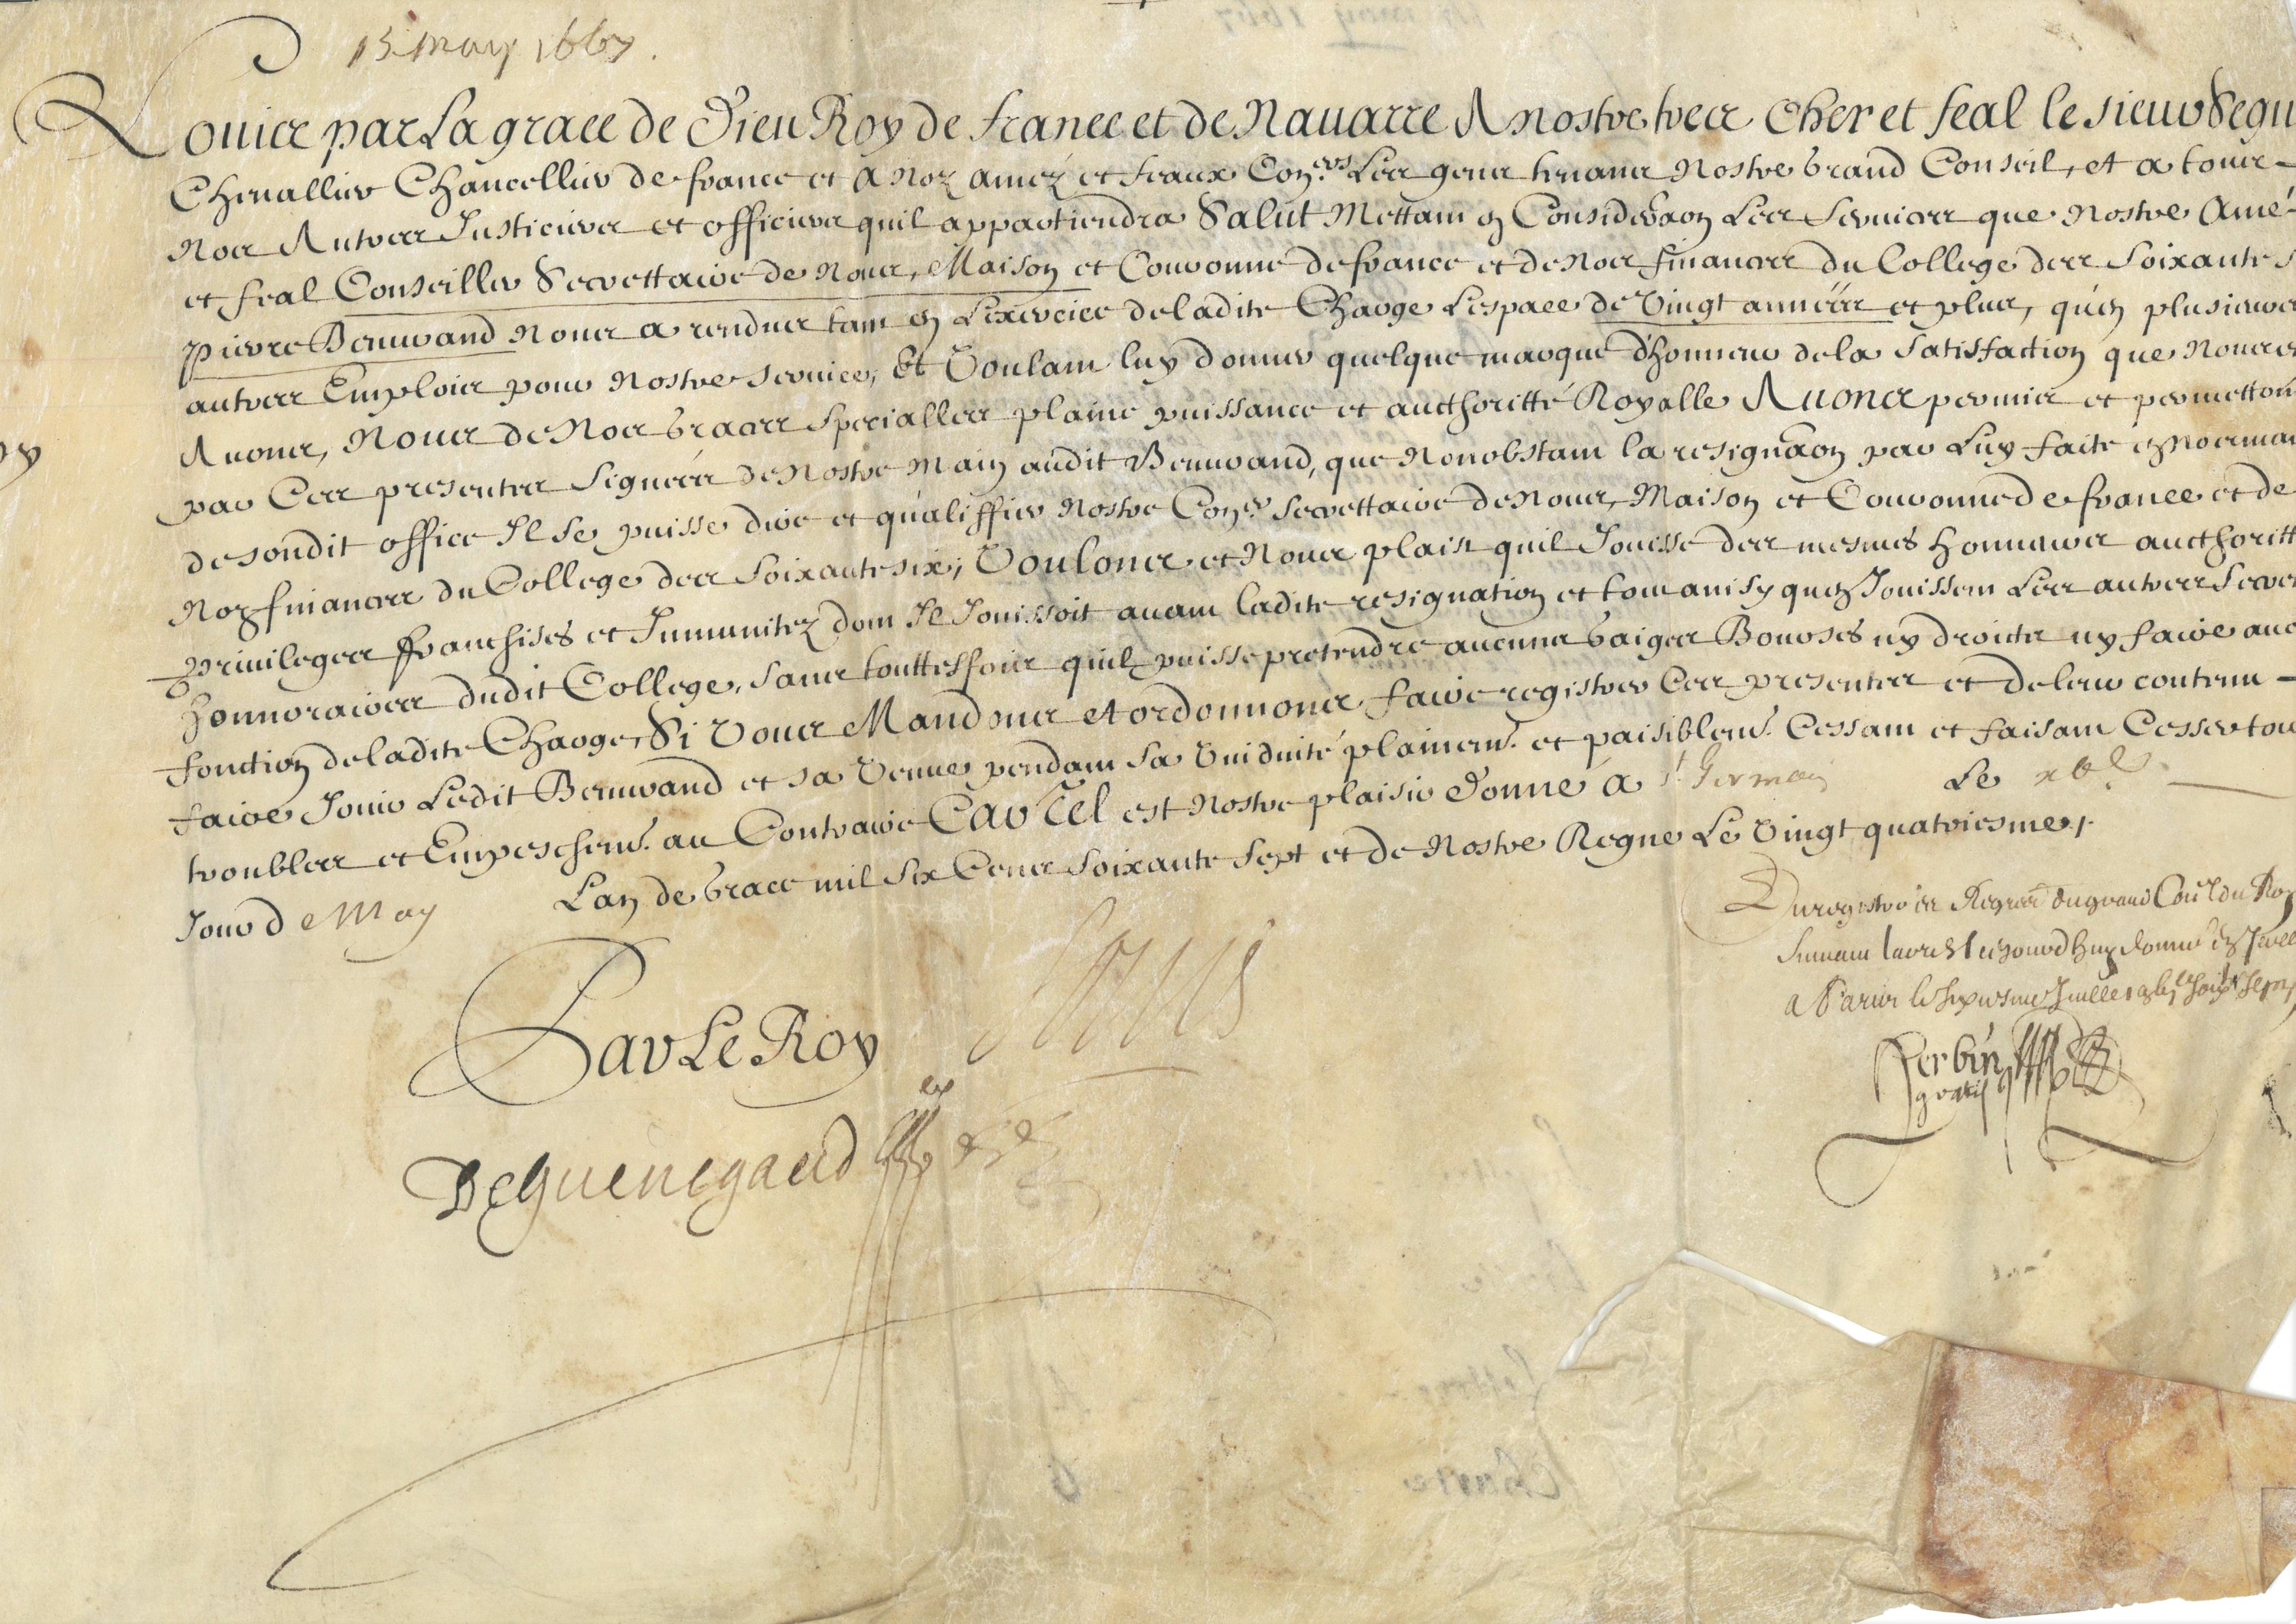 15 may 1667.
Louis par La grace de Dieu Roy de france et de Nauarre A nostre tres Cher et feal le sieur Segu
Cheuallier Chancellier de france et a Noz amez et feaux Con.ers Les gens tenans Nostre Grand Conseil, et a tous
Nos Autres Justiciers et officiers quil appartiendra Salut Mettant en Consideraon Les Seruices que Nostre Amé
et feal Conseiller Secrettaire de Nous, Maison et Couronne de france et de Nos finances du College des Soixante S
Pierre Berruand Nous a rendus tant en Lexercice de ladite Charge Lespace de Vingt années et plus, qu'en plusieurs
autres Emplois pour Nostre seruice, Et Voulant luy donner quelque marque d'honneur de la Satisfaction que Nous en
Auons, Nous de Nos Graces Specialles plaine puissance et aucthoritté Royalle Auons permis et permettons
par Ces presentes Signées de Nostre Main audit Berruand, que Nonobstant la resignaon par Luy faite en Nos mai
de sondit office Il Se puisse dire et qualiffier Nostre Con.er Secrettaire de Nous, Maison et Couronne de france et de
Noz finances du College des Soixante six, Voulons et Nous plaist quil Jouisse des mesmes honneurs aucthoritt
Priuileges franchises et Jmmunitez dont Il Jouissoit auant ladite resignation et tout ainsy quen Jouissent Les autres Secre
honnoraires dudit College, sans touttesfois quil puisse pretendre aucuns Gaiges Bourses ny droicts ny faire auc
fonction de ladite Charge, Si Vous Mandons et ordonnons faire registrer Ces presentes et de leur contenu
faire Jouir Ledit Berruand et sa Veuue pendant sa Viduité plainemt. et paisiblemt. Cessant et faisant Cesser tou
troubles et Empeschemt. au Contraire Car Tel est Nostre plaisir Donné a St. Germain Le xve.
Jour de May Lan de Grace mil Six Cens Soixante Sept et de Nostre Regne Le Vingt quatriesme.
Louis
Par Le Roy
De Guenegaud
Enregistré es Registres du grand Conl du Roy
Suiuant larrest cejourdhuy donné en Jcell
a Paris le Juillet
Herbin
gratis